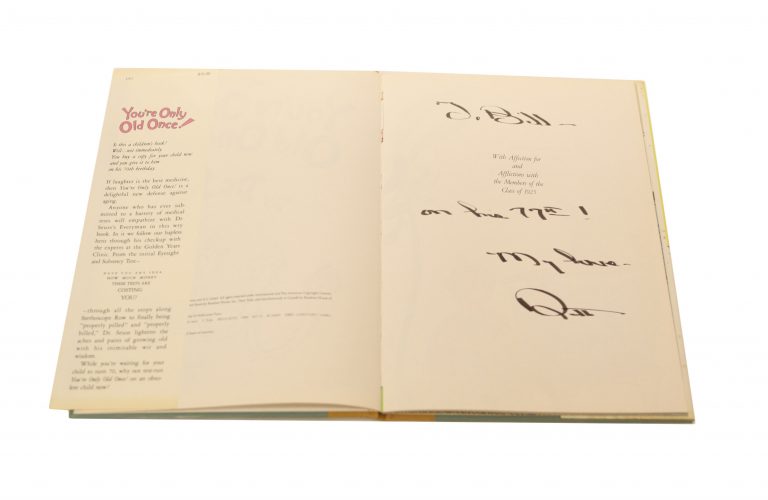 You're Only
Old Once!
Is this a children's book?
Well... not immediately.
You buy a copy for your child now
and you give it to him
on his 70th birthday.
If laughter is the best medicine,
then You're Only Old Once! is a
delightful new defense against
aging.
Anyone who has ever sub-
mitted to a battery of medical
tests will empathize with Dr.
Seuss's Everyman in this wry
book. In it we follow our hapless
hero through his checkup with
the experts at the Golden Years
Clinic. From the initial Eyesight
and Solvency Test—
HAVE YOU ANY IDEA
HOW MUCH MONEY
THESE TESTS ARE
COSTING
YOU?
—through all the stops along
Stethoscope Row to finally being
"properly pilled" and "properly
billed," Dr. Seuss lightens the
aches and pains of growing old
with his inimitable wit and
wisdom.
While you're waiting for your
child to turn 70, why not test-run
You're Only Old Once! on an obso-
lete child now?
To Bill—
With Affection for
and
Afflictions with
the Members of the
Class of 1925
on the 77th!
My love—